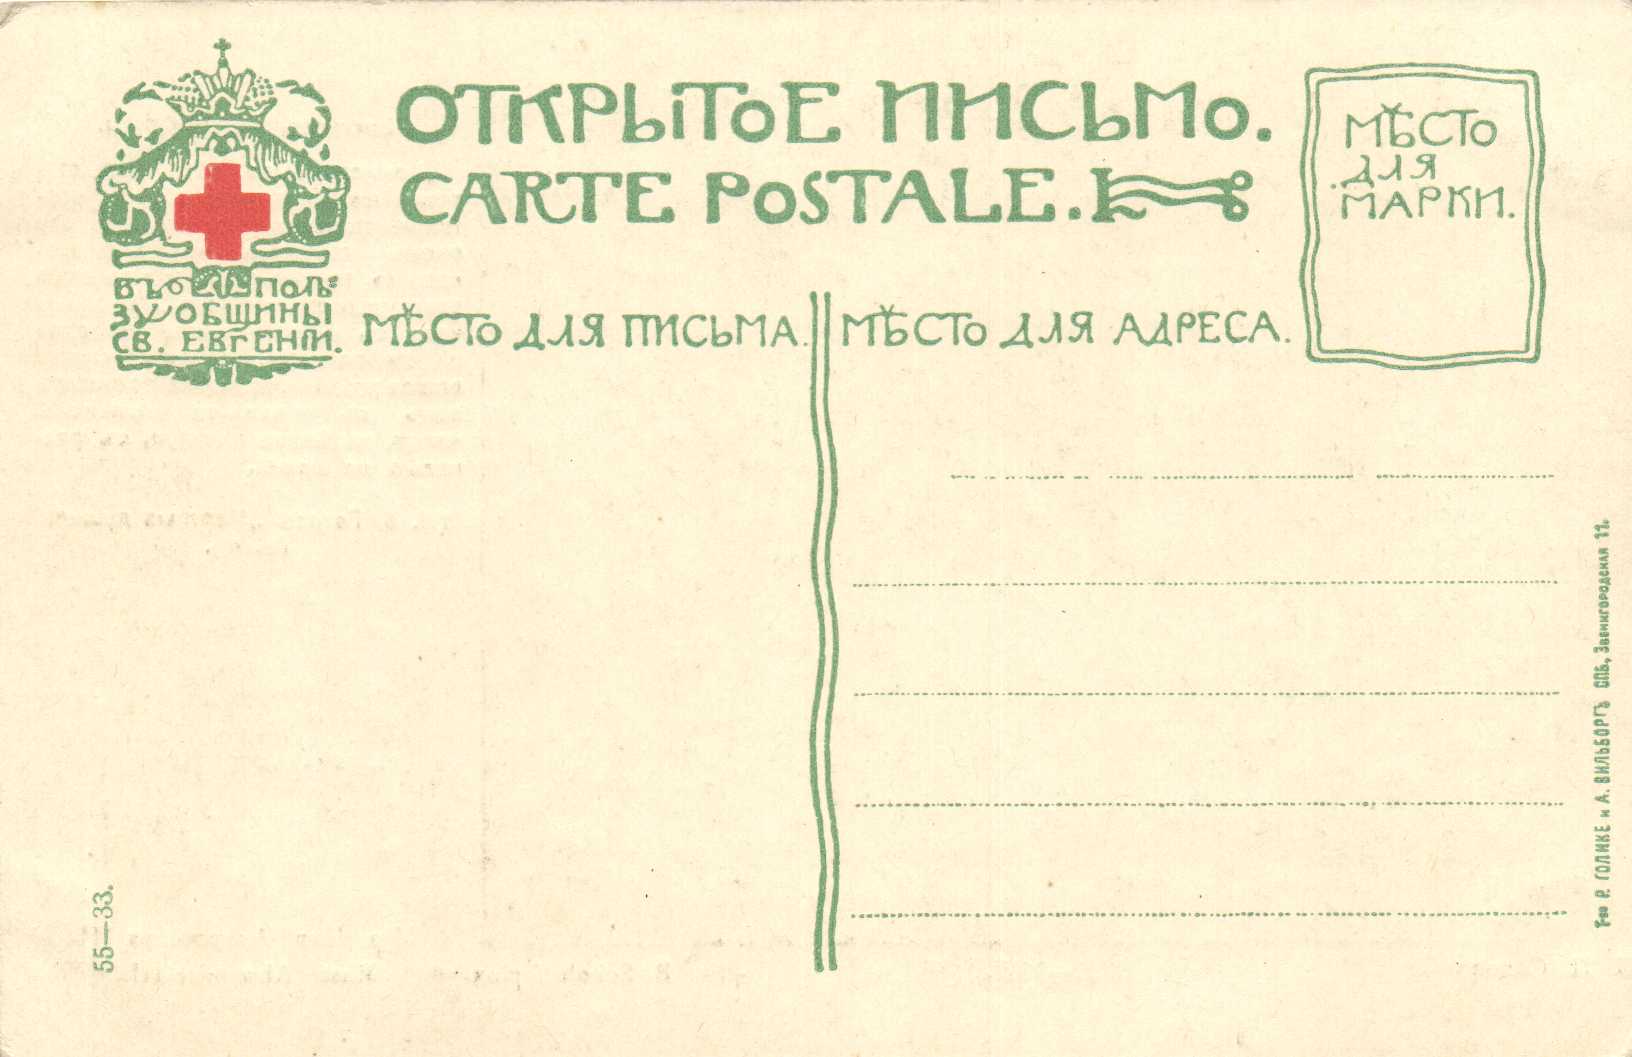 ОТКРЫТОЕ ПИСЬМО.
CARTE POSTALE.
МѢСТО
ДЛЯ
МАРКИ.
ВЪ ПОЛЬ
ЗУ ОБЩИНЫ
СВ. ЕВГЕНІИ.
МѢСТО ДЛЯ ПИСЬМА.
МѢСТО ДЛЯ АДРЕСА.
55—33.
Т-во Р. ГОЛИКЕ и А. ВИЛЬБОРГЪ СПБ, Звенигородская 11.